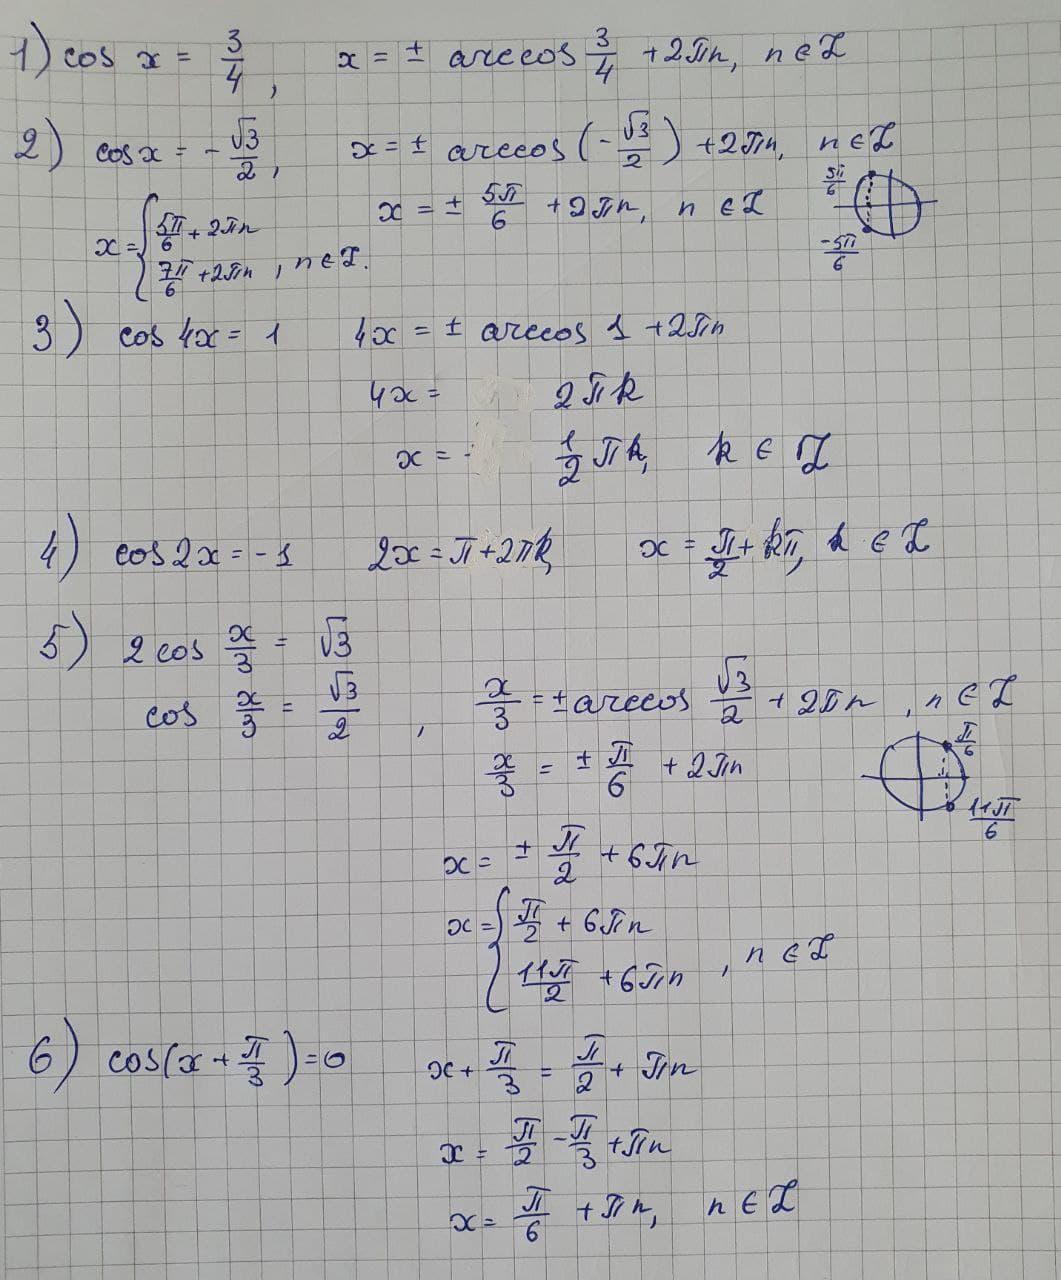 1) cos x = 3/4, x = ± arccos 3/4 + 2πn, n ∈ Z
2) cos x = - √3/2, x = ± arccos(-√3/2) + 2πn, n ∈ Z
x = ± 5π/6 + 2πn, n ∈ Z
5π/6
-5π/6
x = { 5π/6 + 2πn
7π/6 + 2πn, n ∈ Z.
3) cos 4x = 1 4x = ± arccos 1 + 2πn
4x = 2πk
x = 1/2 πk, k ∈ Z
4) cos 2x = -1 2x = π + 2πk, x = π/2 + kπ, k ∈ Z
5) 2 cos x/3 = √3
cos x/3 = √3/2, x/3 = ± arccos √3/2 + 2πn, n ∈ Z
x/3 = ± π/6 + 2πn
π/6
11π/6
x = ± π/2 + 6πn
x = { π/2 + 6πn
11π/2 + 6πn, n ∈ Z
6) cos(x + π/3) = 0 x + π/3 = π/2 + πn
x = π/2 - π/3 + πn
x = π/6 + πn, n ∈ Z